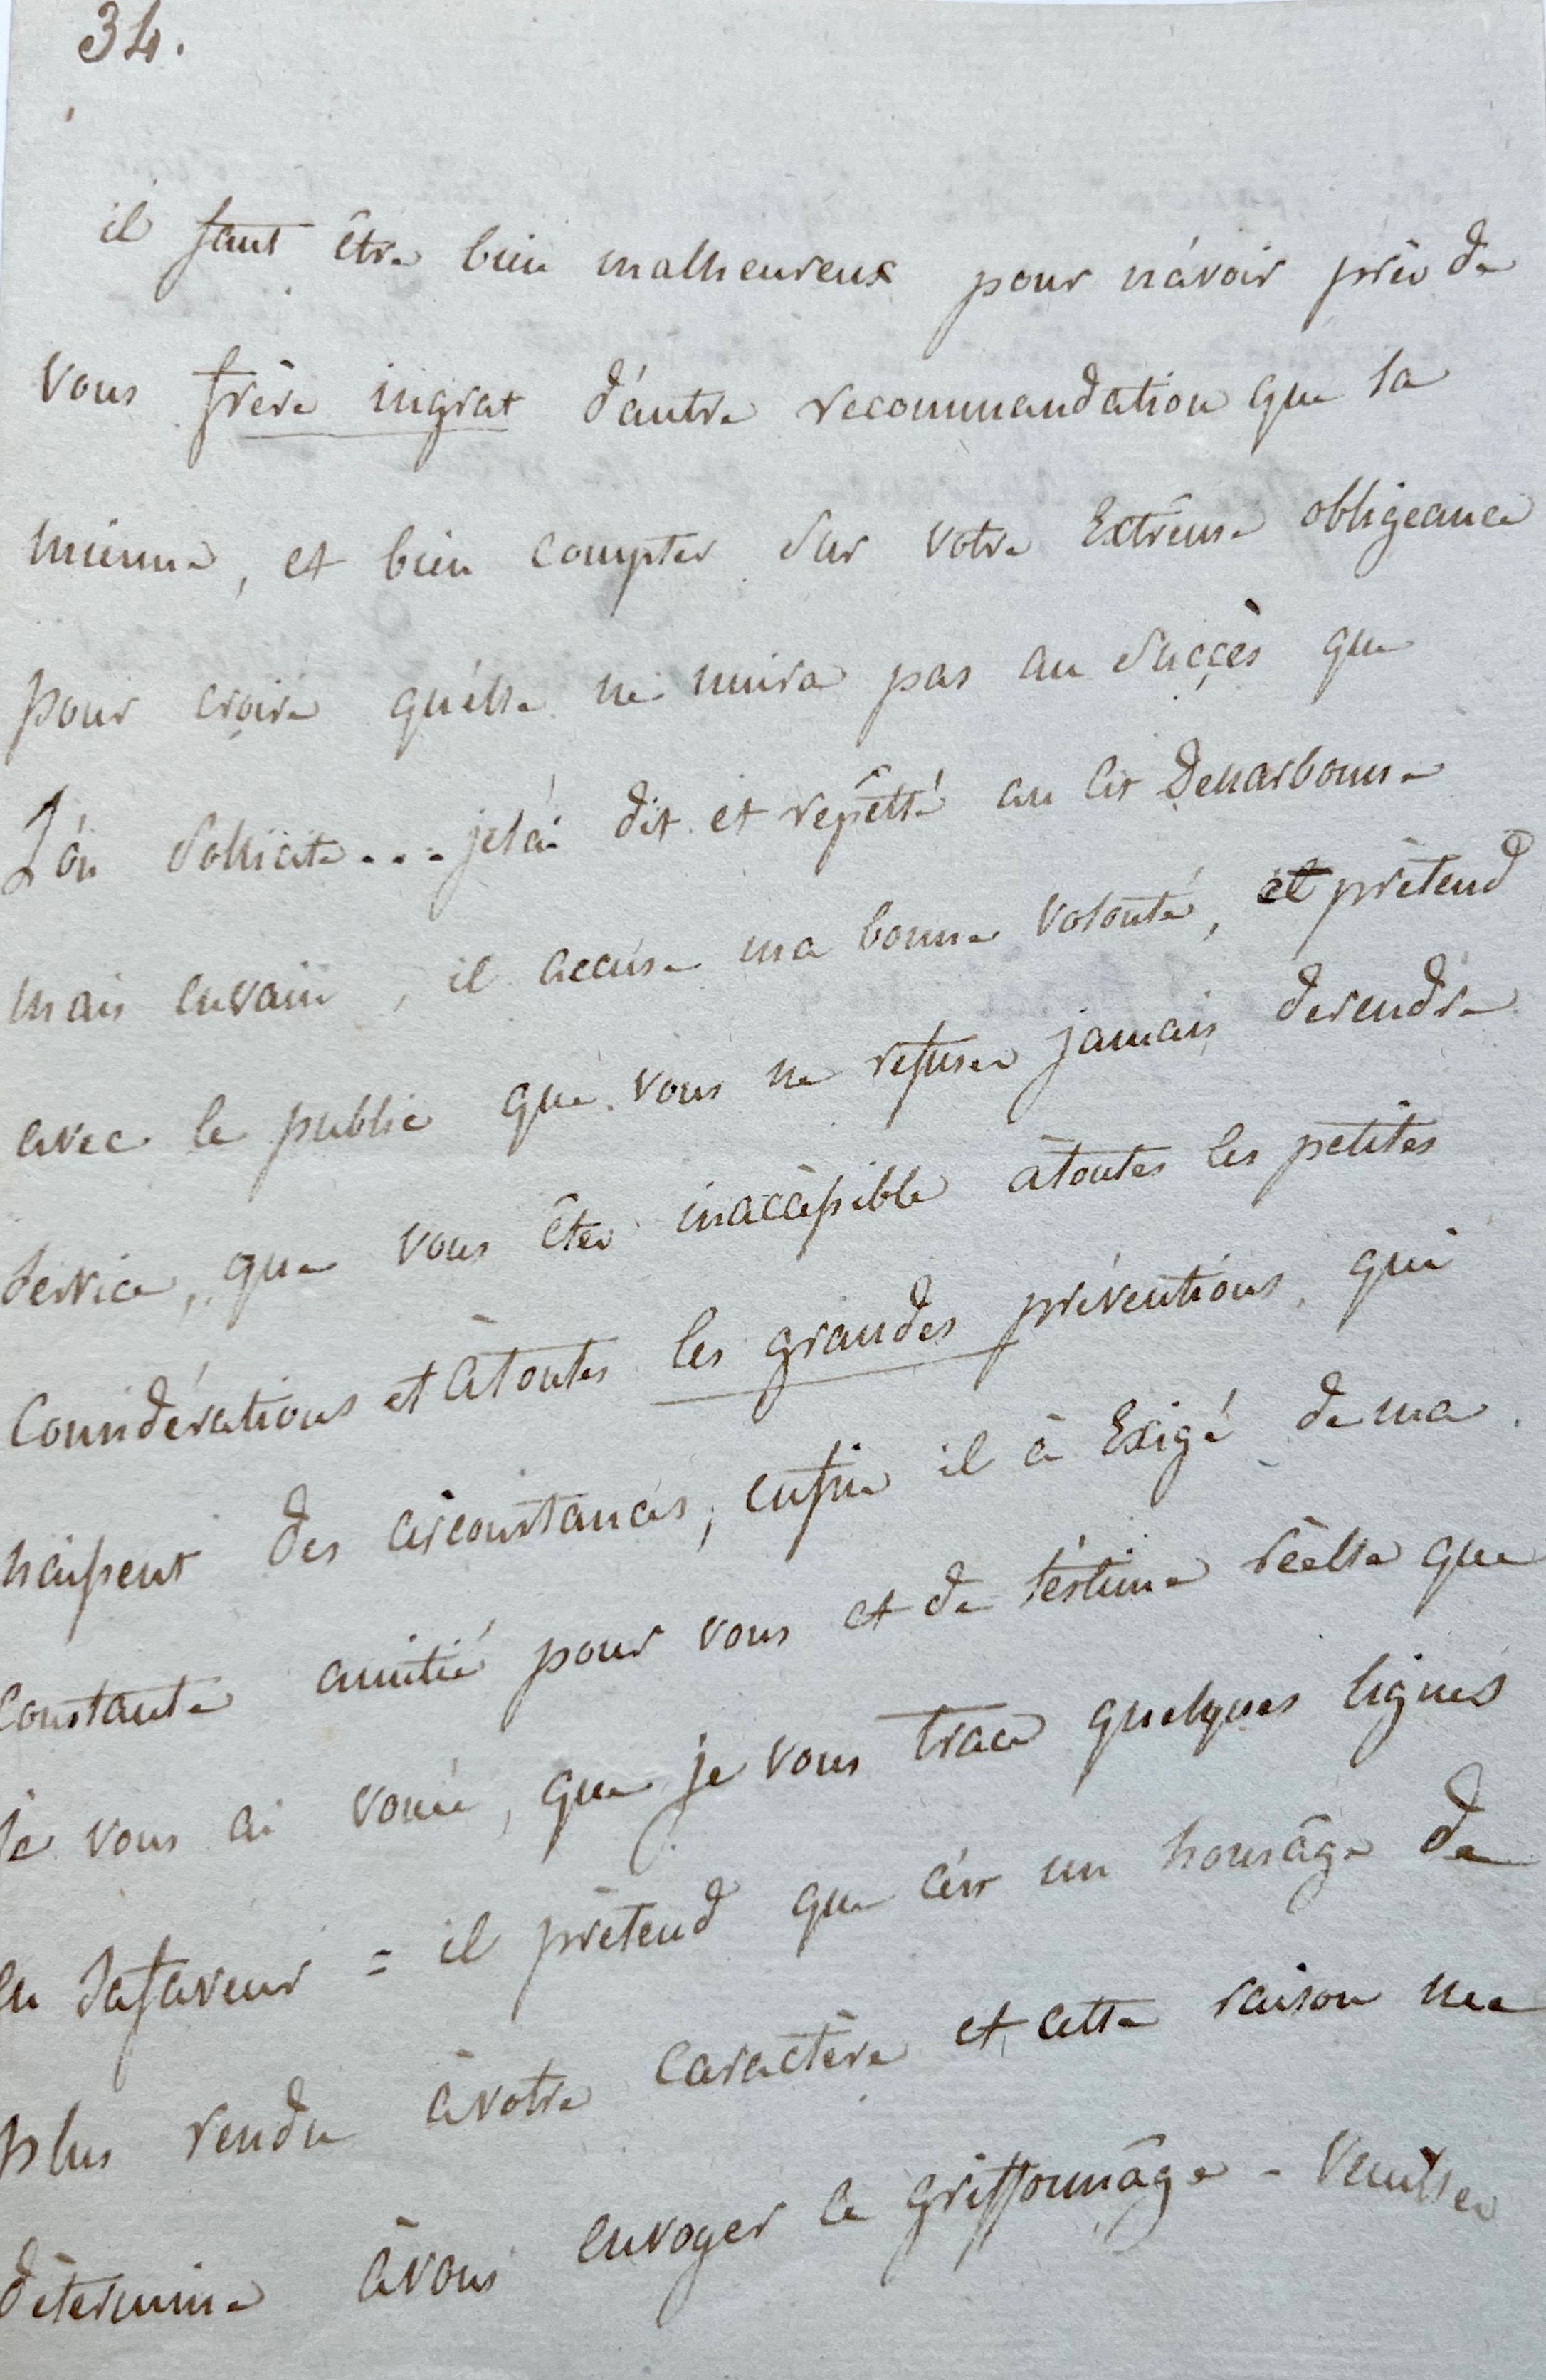 34.
il faut être bien malheureux pour n'avoir près de
vous frère ingrat d'autre recommandation que la
mienne, et bien compter sur votre Extrême obligeance
pour croire qu'elle ne nuira pas au succès que
L'on sollicite... je l'ai dit et repêtté au Cit Denarbonne
mais envain, il accuse ma bonne volonté, et prètend
avec le public que vous ne refusez jamais derendre
service, que vous êtes inaccèssible àtoutes les petites
Considérations et àtoutes les grandes préventions, qui
naissent des circonstances, enfin il à Exigé de ma
Constante amitié pour vous et de l'estime réelle que
je vous ai vouée, que je vous trace quelques lignes
en safaveur = il prètend que c'est un homâge de
plus rendu àvotre caractère et cette raison me
dètermine àvous envoyer ce griffonnâge - Veuillez